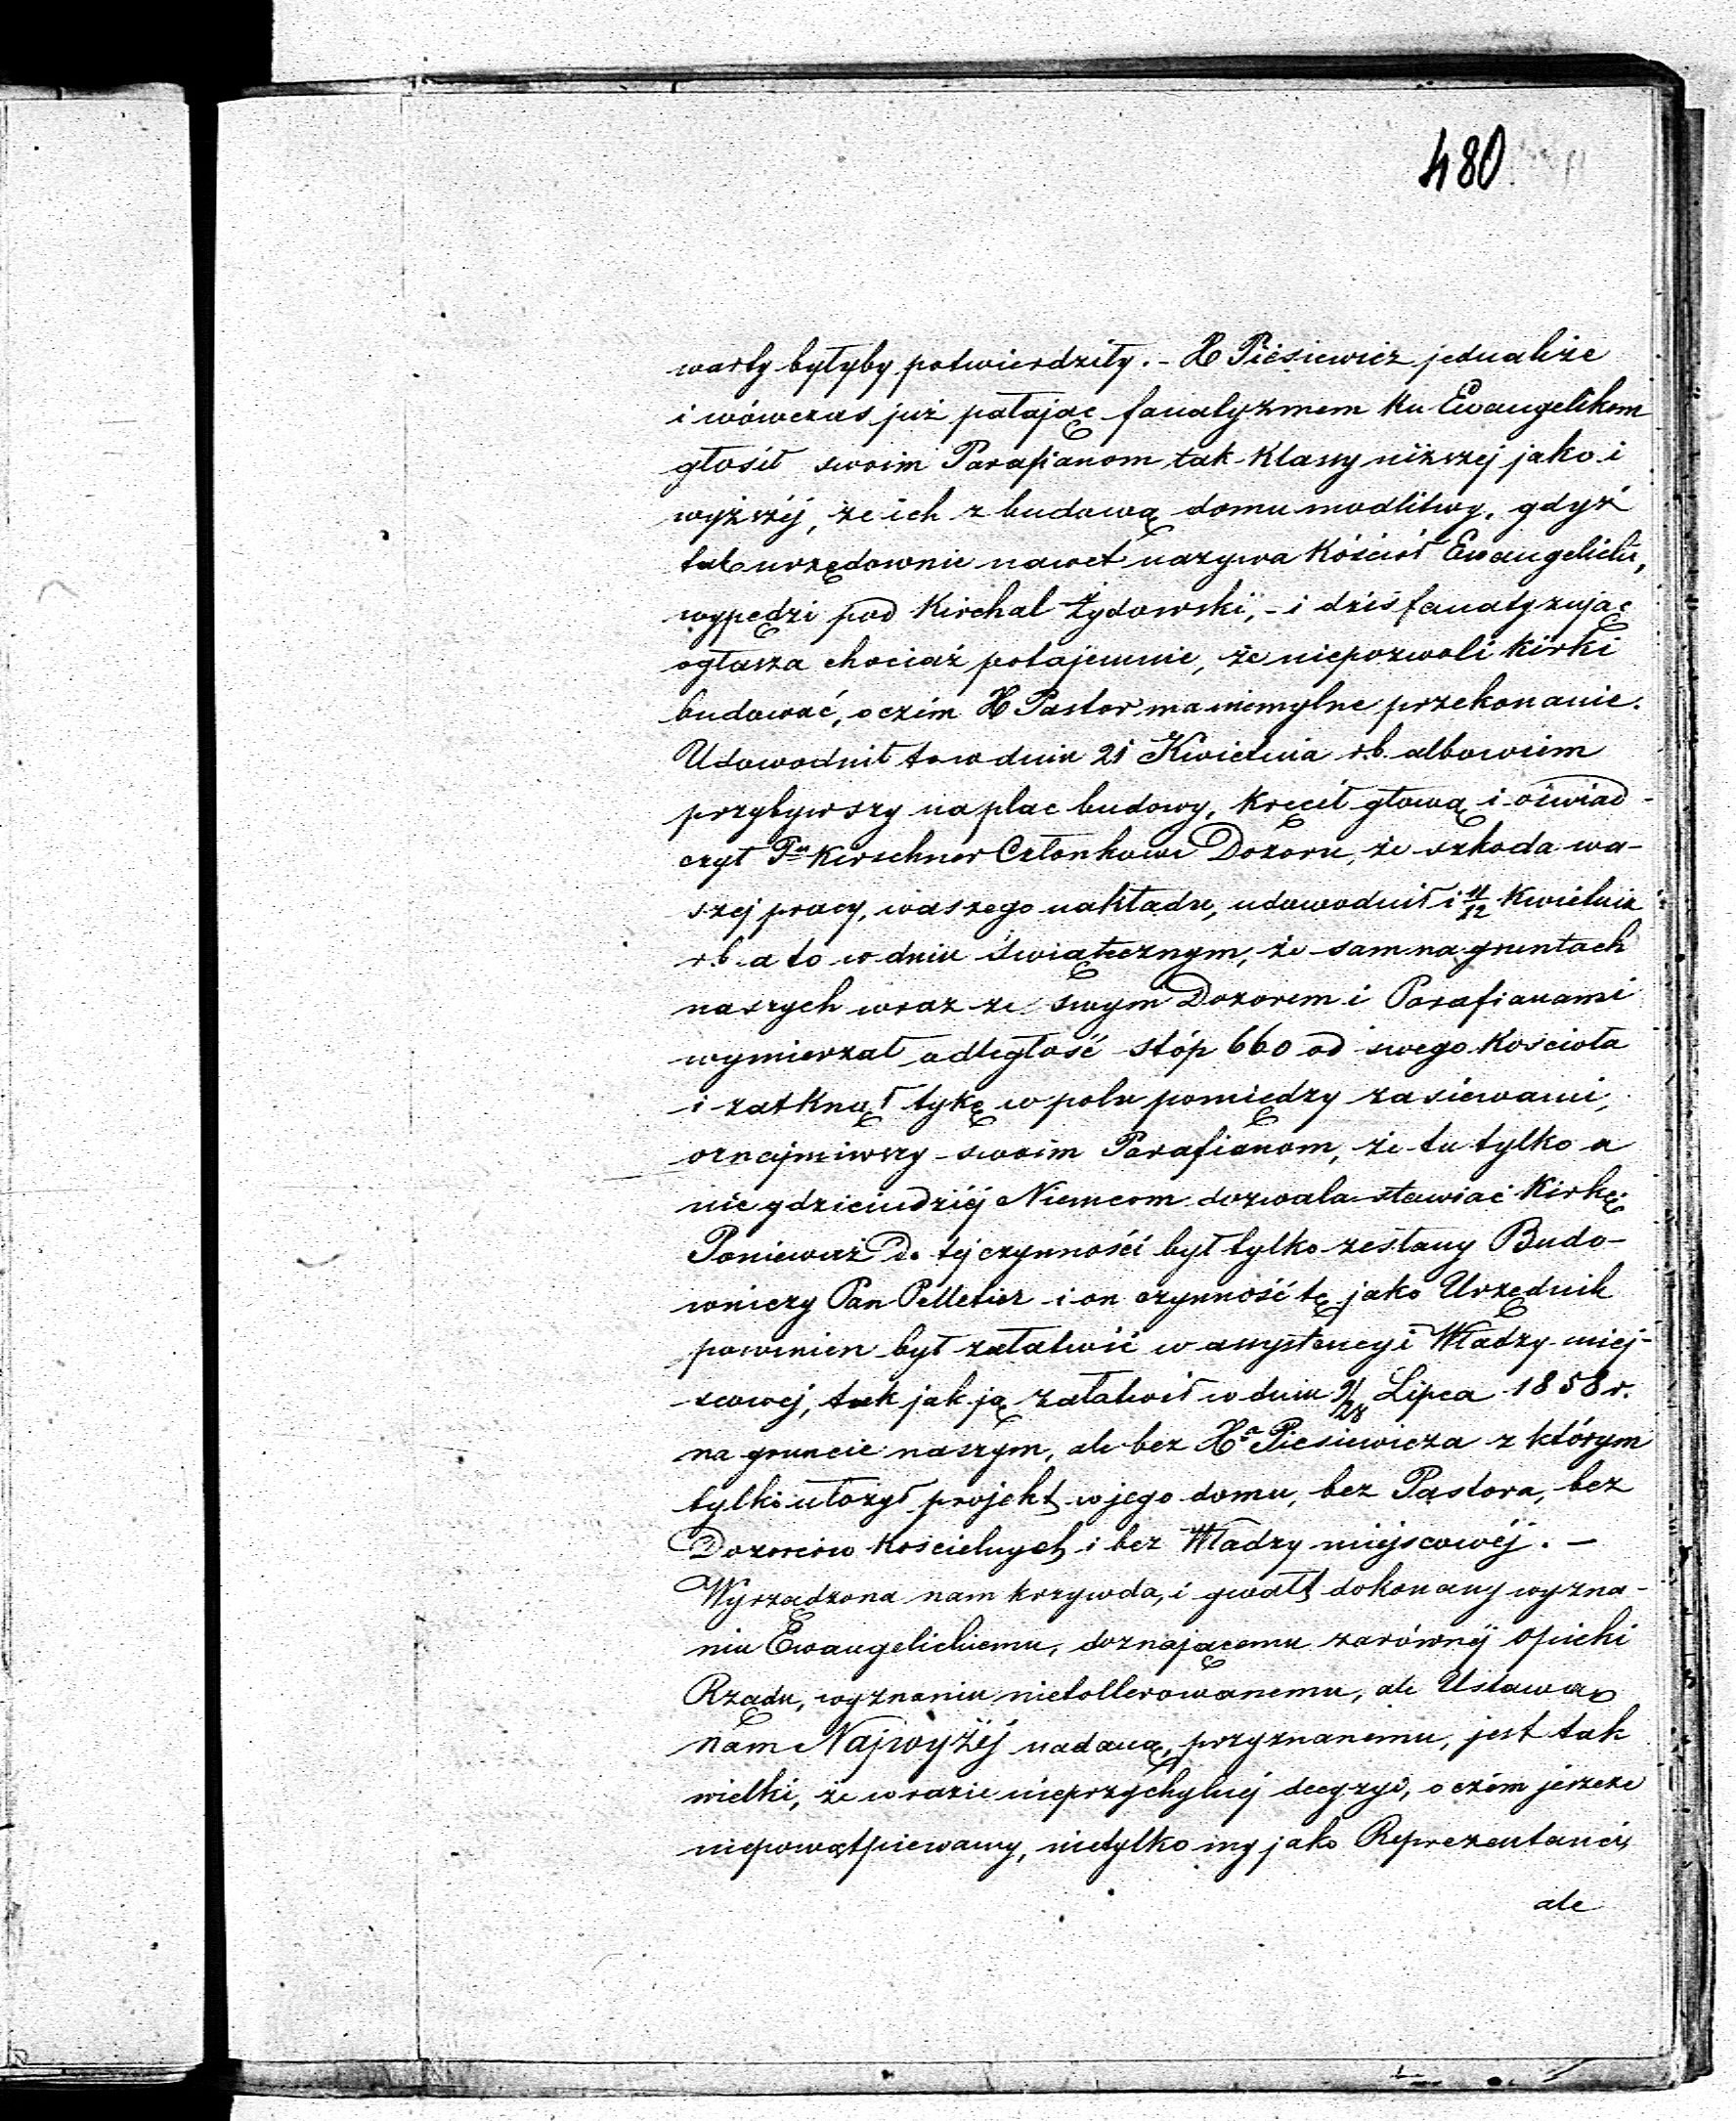 480
warły byłyby potwierdziły. - X Piesiewicz jednakże
i wówczas już pałając fanatyzmem ku Ewangelikom
głosił swoim Parafianom tak klassy niższej jako i
wyższéj, że ich z budową domu modlitwy, gdyż
tak urzędownie nawet nazywa Kościół Ewangelicki,
wypędzi pod Kirchal Żydowski, - i dziś fanatyzując
ogłasza chociaż potajemnie, że niepozwoli kirki
budować, o czém X Pastor ma niemylne przekonanie.
Udowodnił to w dniu 21 Kwietnia r.b. albowiem
przybywszy na plac budowy, kręcił głową i oświad-
czył Pu Kirschner Członkowi Dozoru, że szkoda wa-
szej pracy, waszego nakładu, udowodnił i 11/12 Kwietnia
r.b. a to w dniu świątecznym, że sam na gruntach
naszych wraz ze swym Dozorem i Parafianami
wymierzał odległość stóp 660 od swego Kościoła
i zatknął tykę w polu pomiędzy zasiewami,
oznajmiwszy swoim Parafianom, że tu tylko a
nie gdzieindziéj Niemcom dozwala stawiać Kirkę.
Ponieważ do tej czynności był tylko zesłany Budo-
wniczy Pan Pelletier i on czynność tę jako Urzędnik
powinien był załatwić w assystencyi Władzy miej-
scowej, tak jak ją załatwił w dniu 9/28 Lipca 1858 r.
na gruncie naszym, ale bez Xa Piesiewicza z którym
tylko ułożył projekt w jego domu, bez Pastora, bez
Dozorców Kościelnych i bez Władzy miejscowéj. -
Wyrządzona nam krzywda, i gwałt dokonany wyzna-
niu Ewangelickiemu, doznającemu zarównéj opieki
Rządu, wyznaniu nietollerowanemu, ale Ustawą
nam Najwyżéj nadaną, przyznanemu, jest tak
wielki, że w razie nieprzychylnéj decyzyi, o czém jeszcze
niepowątpiewamy, nietylko my jako Reprezentanci,
ale